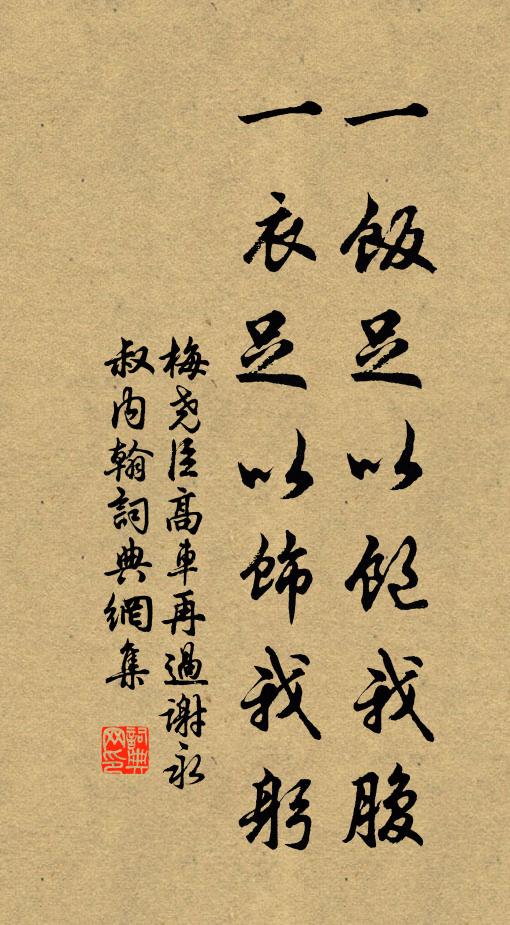 一飯足以飽我腹
一衣足以飾我躬
梅堯臣高車再過謝永
叔內翰詞典網集
詞典网印